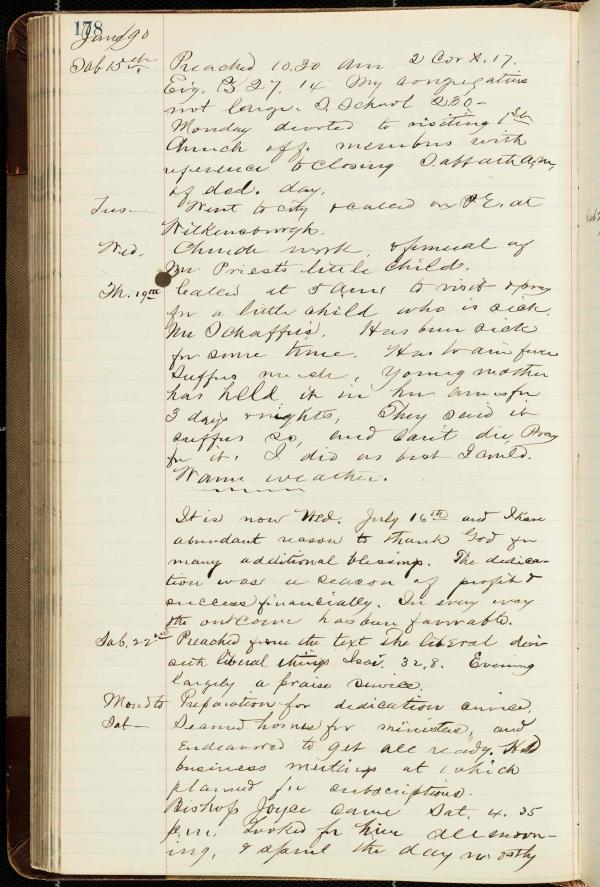 178
June/90
Sab 15th. Preached 10.30 Am. 2 Cor X. 17.
Evg. Ps 27, 14 My congregation
not large. S. School 2.30-
Monday devoted to visiting 1st
Church off. members with
reference to closing Sabbath A.M.
of ded. day.
Tues- Went to city & called on P.E. at
Wilkinsburgh.
Wed. Church work, & funeral of
Mr Priest's little child.
Th. 19th Called at 5 Am. to visit & pray
for a little child who is sick.
Mr Schaffus. Has been sick
for some time. Has brain fever
Suffers much, Young mother
has held it in her arms for
3 days & nights, They said it
suffers so, and can't die, Pray
for it. I did as best I could.
Warm weather.
It is now Wed. July 16th and I have
abundant reason to thank God for
many additional blessings. The dedica-
tion was a season of profit &
success financially. In every way
the outcome has been favorable.
Sab. 22nd Preached from the text The liberal devi
seth liberal things Isai. 32,8. Evening
largely a praise service.
Mond to Preparation for dedication service.
Sat- Secured homes for ministers, and
Endeavored to get all ready. Held
business meetings at which
planned for subscriptions.
Bishop Joyce came Sat. 4.35
p.m. Looked for him all morn-
ing, & spent the day mostly